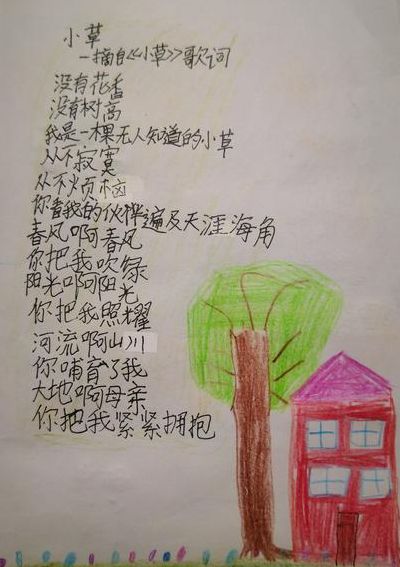 小草
—摘自《小草》歌词
没有花香
没有树高
我是一棵无人知道的小草
从不寂寞
从不烦恼
你看我的伙伴遍及天涯海角
春风啊春风
你把我吹绿
阳光啊阳光
你把我照耀
河流啊山川
你哺育了我
大地啊母亲
你把我紧紧拥抱